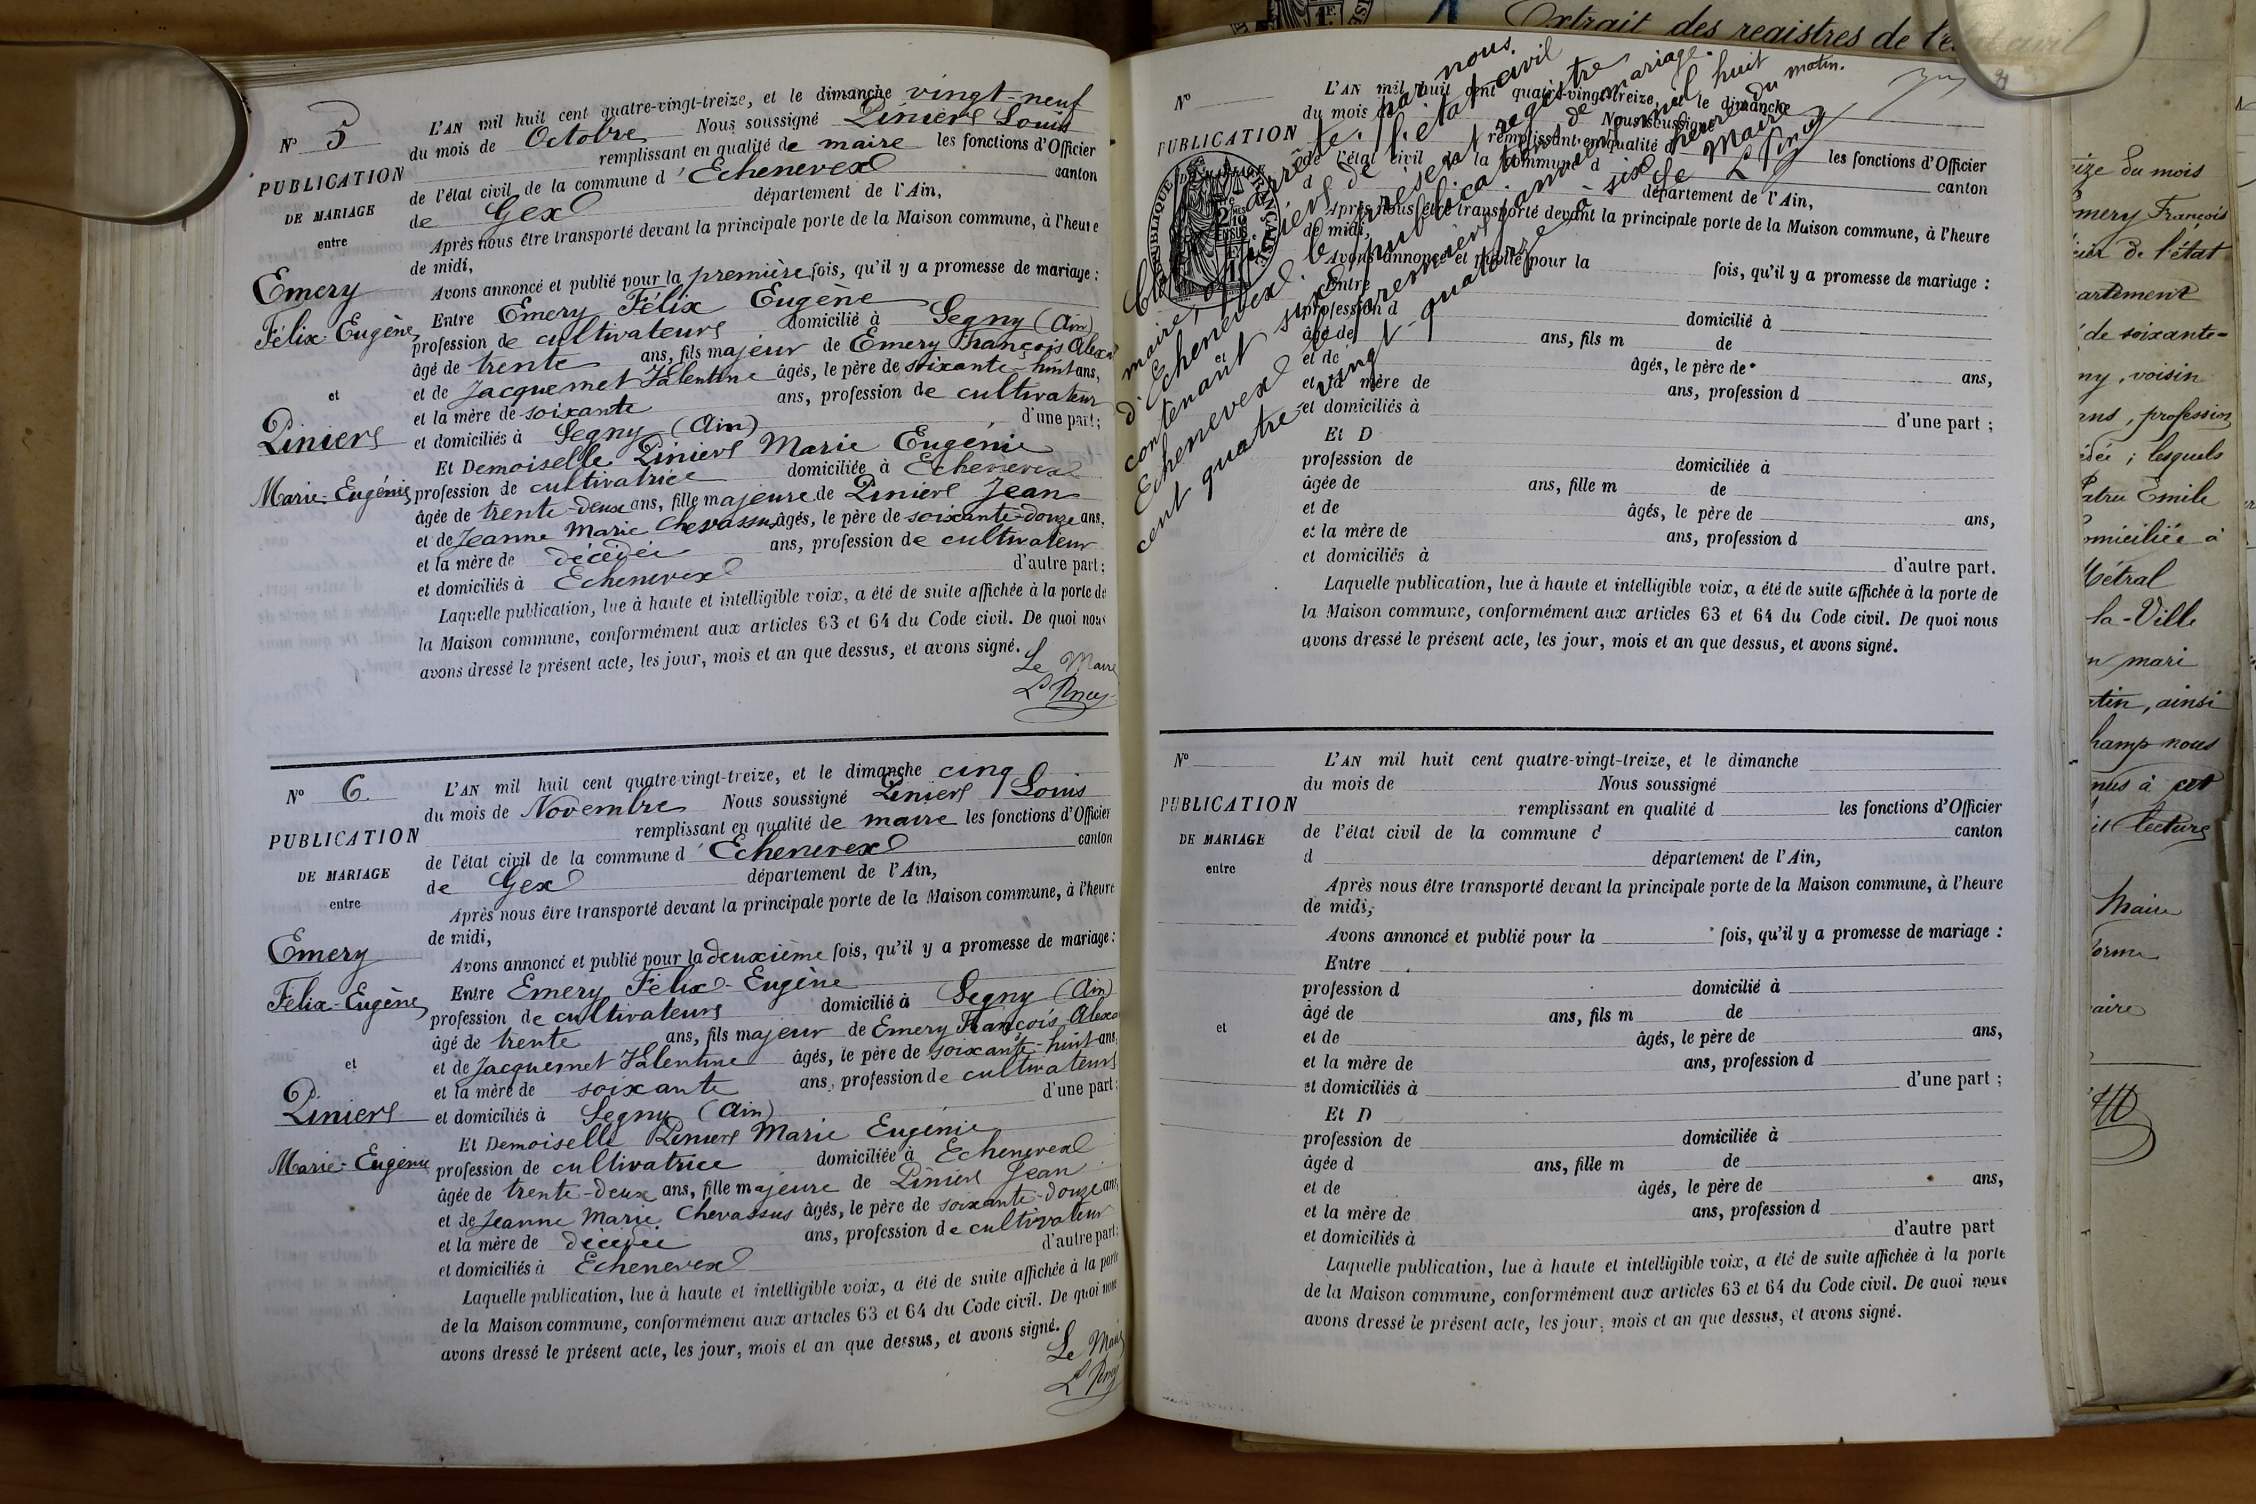 Extrait des registres de l'
N° 5
PUBLICATION
DE MARIAGE
entre
Emery
Félix-Eugène
et
Liniers
Marie-Eugénie
L'AN mil huit cent quatre-vingt-treize, et le dimanche vingt-neuf
du mois de Octobre Nous soussigné Liniers Louis
remplissant en qualité de maire les fonctions d'Officier
de l'état civil de la commune d'Echenevex canton
de Gex département de l'Ain,
Après nous être transporté devant la principale porte de la Maison commune, à l'heure
de midi,
Avons annoncé et publié pour la première fois, qu'il y a promesse de mariage :
Entre Emery Félix Eugène
profession de cultivateurs domicilié à Segny (Ain)
âgé de trente ans, fils majeur de Emery François
et de Jacquemet âgés, le père de soixante-huit ans,
et la mère de soixante ans, profession de cultivateur
et domiciliés à Segny (Ain) d'une part ;
Et Demoiselle Liniers Marie Eugénie
profession de cultivatrice domiciliée à Echenevex
âgée de trente-deux ans, fille majeure de Liniers Jean
et de Jeanne Marie Chevassus âgés, le père de soixante-douze ans,
et la mère de décédée ans, profession de cultivateur
et domiciliés à Echenevex d'autre part ;
Laquelle publication, lue à haute et intelligible voix, a été de suite affichée à la porte de
la Maison commune, conformément aux articles 63 et 64 du Code civil. De quoi nous
avons dressé le présent acte, les jour, mois et an que dessus, et avons signé.
Le Maire
N° 6
PUBLICATION
DE MARIAGE
entre
Emery
Félix-Eugène
et
Liniers
Marie-Eugénie
L'AN mil huit cent quatre-vingt-treize, et le dimanche cinq
du mois de Novembre Nous soussigné Liniers Louis
remplissant en qualité de maire les fonctions d'Officier
de l'état civil de la commune d'Echenevex canton
de Gex département de l'Ain,
Après nous être transporté devant la principale porte de la Maison commune, à l'heure
de midi,
Avons annoncé et publié pour la deuxième fois, qu'il y a promesse de mariage :
Entre Emery Félix-Eugène
profession de cultivateurs domicilié à Segny (Ain)
âgé de trente ans, fils majeur de Emery François
et de Jacquemet âgés, le père de soixante-huit ans,
et la mère de soixante ans, profession de cultivateurs
et domiciliés à Segny (Ain) d'une part ;
Et Demoiselle Liniers Marie Eugénie
profession de cultivatrice domiciliée à Echenevex
âgée de trente-deux ans, fille majeure de Liniers Jean
et de Jeanne Marie Chevassus âgés, le père de soixante-douze ans,
et la mère de décédée ans, profession de cultivateur
et domiciliés à Echenevex d'autre part ;
Laquelle publication, lue à haute et intelligible voix, a été de suite affichée à la porte
de la Maison commune, conformément aux articles 63 et 64 du Code civil. De quoi nous
avons dressé le présent acte, les jour, mois et an que dessus, et avons signé.
Le Maire
arrêté par nous
maire, officiers de l'état civil
d'Echenevex le présent registre
contenant six publications de mariage.
Echenevex le premier janvier mil huit
cent quatre-vingt-quatorze à six heures du matin.
Le Maire
N°
PUBLICATION
L'AN mil huit cent quatre-vingt-treize, et le dimanche
du mois de Nous soussigné
remplissant en qualité d les fonctions d'Officier
de l'état civil de la commune d canton
d département de l'Ain,
Après nous être transporté devant la principale porte de la Maison commune, à l'heure
de midi,
Avons annoncé et publié pour la fois, qu'il y a promesse de mariage :
Entre
profession d domicilié à
âgé de ans, fils m de
et de âgés, le père de ans,
et la mère de ans, profession d
et domiciliés à d'une part ;
Et D
profession de domiciliée à
âgée de ans, fille m de
et de âgés, le père de ans,
et la mère de ans, profession d
et domiciliés à d'autre part.
Laquelle publication, lue à haute et intelligible voix, a été de suite affichée à la porte de
la Maison commune, conformément aux articles 63 et 64 du Code civil. De quoi nous
avons dressé le présent acte, les jour, mois et an que dessus, et avons signé.
N°
PUBLICATION
DE MARIAGE
entre
et
L'AN mil huit cent quatre-vingt-treize, et le dimanche
du mois de Nous soussigné
remplissant en qualité d les fonctions d'Officier
de l'état civil de la commune d canton
d département de l'Ain,
Après nous être transporté devant la principale porte de la Maison commune, à l'heure
de midi,
Avons annoncé et publié pour la fois, qu'il y a promesse de mariage :
Entre
profession d domicilié à
âgé de ans, fils m de
et de âgés, le père de ans,
et la mère de ans, profession d
et domiciliés à d'une part ;
Et D
profession de domiciliée à
âgée d ans, fille m de
et de âgés, le père de ans,
et la mère de ans, profession d
et domiciliés à d'autre part
Laquelle publication, lue à haute et intelligible voix, a été de suite affichée à la porte
de la Maison commune, conformément aux articles 63 et 64 du Code civil. De quoi nous
avons dressé le présent acte, les jour, mois et an que dessus, et avons signé.
du mois
François
de l'état
de soixante-
voisin
profession
lesquels
Emile
à
Métral
la-Ville
mari
ainsi
nous
à cet
lecture
Maire